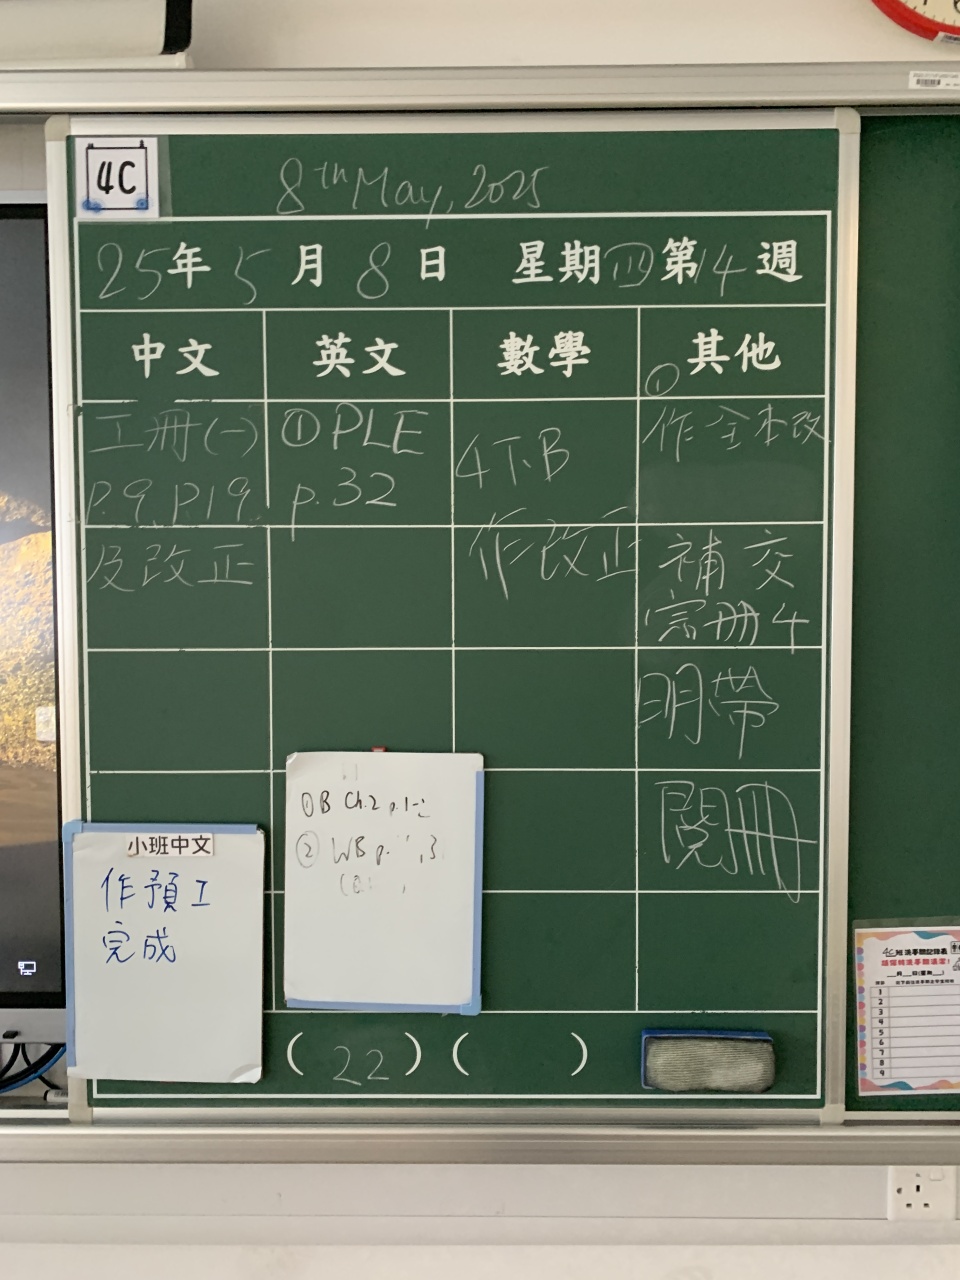 4C
8th May, 2025
25年5月8日 星期四第14週
中文 英文 數學 其他
工冊(一)
P.9, P.19
及改正
①PLE
p.32
4下B
作改正
①
作全本改
補交
冊4
明帶
閱冊
①B Ch.2 p.1-2
② WB p. , 3
小班中文
作預工
完成
( 22 ) ( )
4C班
1
2
3
4
5
6
7
8
9